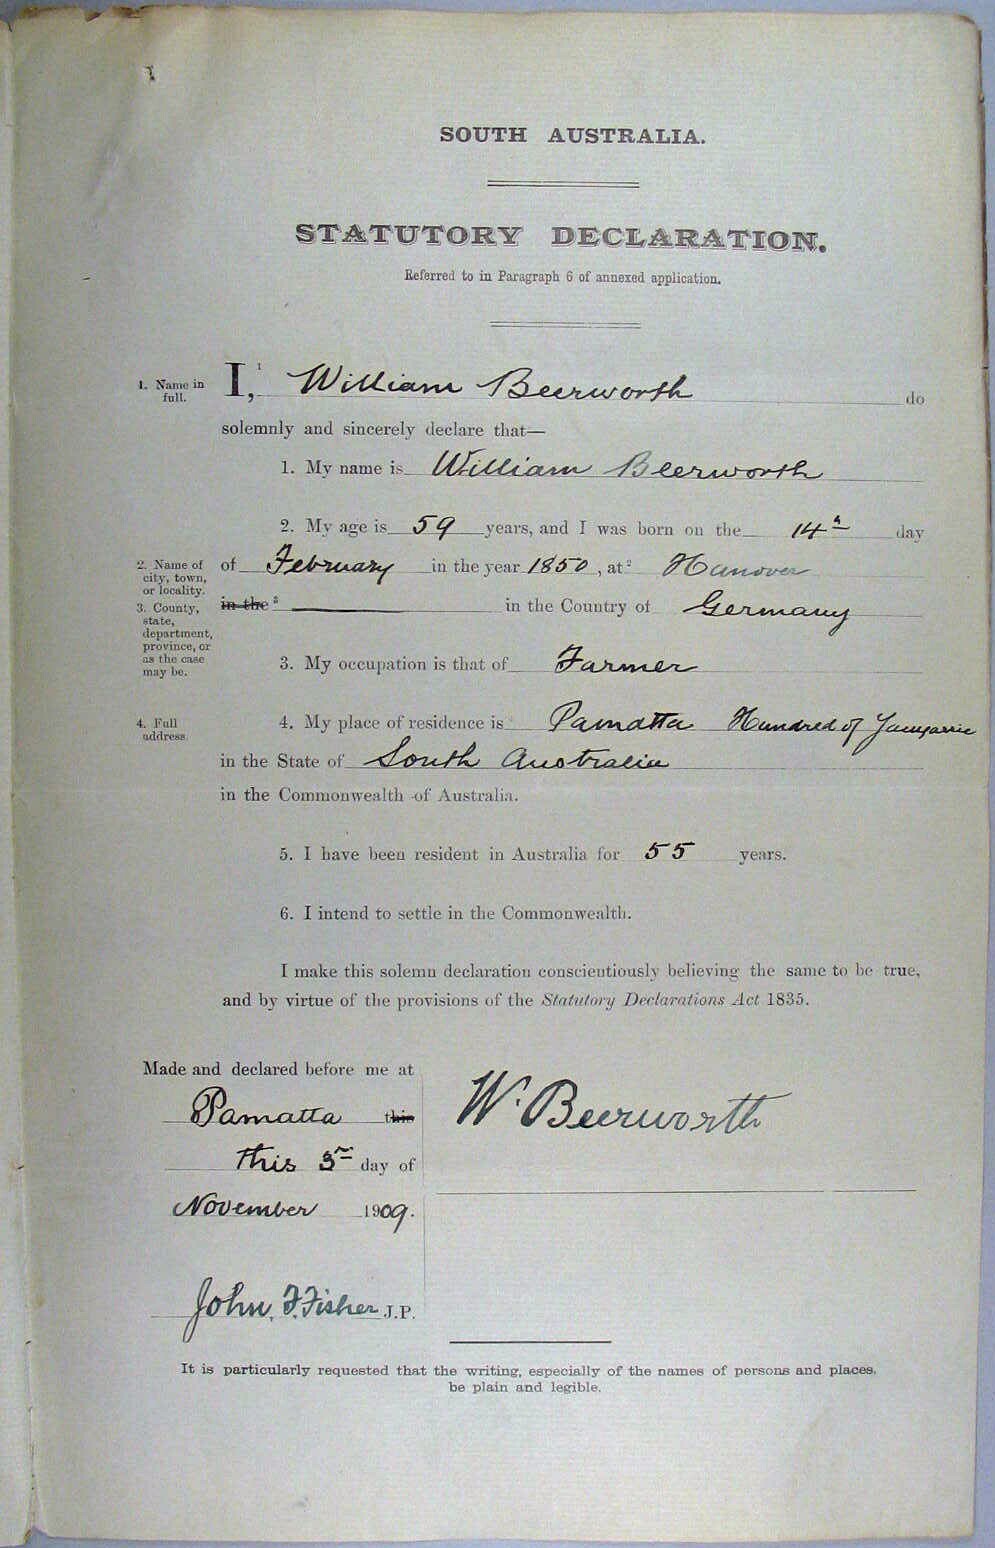 SOUTH AUSTRALIA.
STATUTORY DECLARATION.
Referred to in Paragraph 6 of annexed application.
1. Name in
full.
I,¹ William Beerworth do
solemnly and sincerely declare that—
1. My name is William Beerworth
2. My age is 59 years, and I was born on the 14th day
2. Name of
city, town,
or locality.
of February in the year 1850, at² Hanover
3. County,
state,
department,
province, or
as the case
may be.
in the³ in the Country of Germany
3. My occupation is that of Farmer
4. Full
address.
4. My place of residence is⁴ Pamatta Hundred of
in the State of South Australia
in the Commonwealth of Australia.
5. I have been resident in Australia for 55 years.
6. I intend to settle in the Commonwealth.
I make this solemn declaration conscientiously believing the same to be true,
and by virtue of the provisions of the Statutory Declarations Act 1835.
Made and declared before me at
Pamatta this
this day of
November 1909.
W. Beerworth
John. F. Fisher J.P.
It is particularly requested that the writing, especially of the names of persons and places,
be plain and legible.